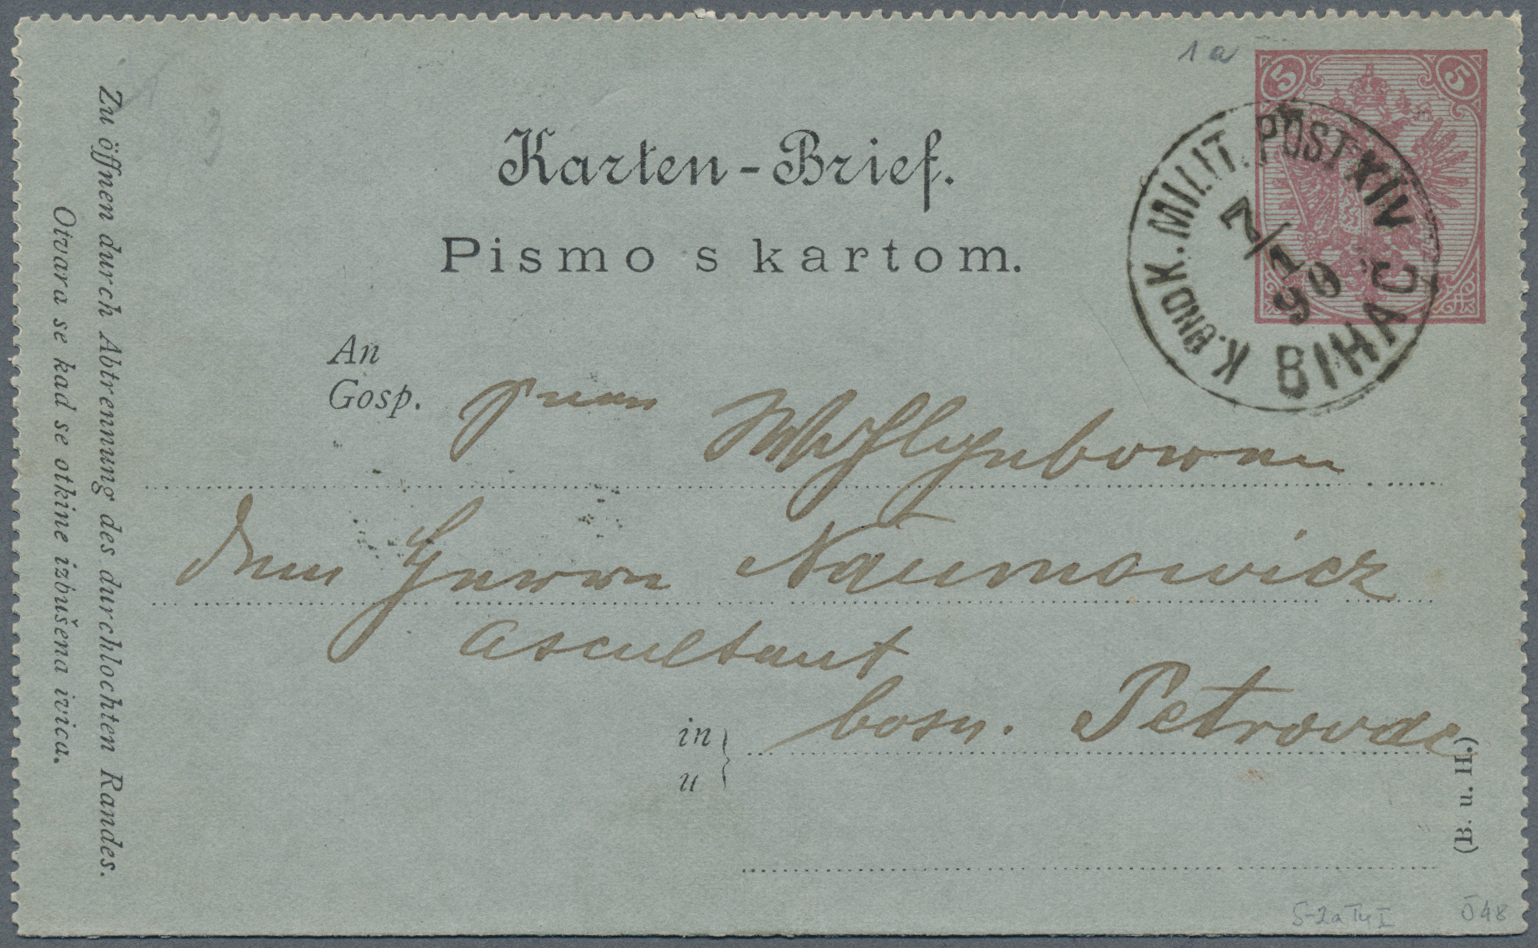 1a
5 5
Karten-Brief.
Pismo s kartom.
K. UND K. MILIT. POST XIV
BIHAĆ
7/1
90
An
Gosp.
dem Herrn Naumowicz
Ascultant
in
u
bosn. Petrovac
(B. u. H.)
Zu öffnen durch Abtrennung des durchlochten Randes.
Otvara se kad se otkine izbušena ivica.
S-2a Ty I
J48